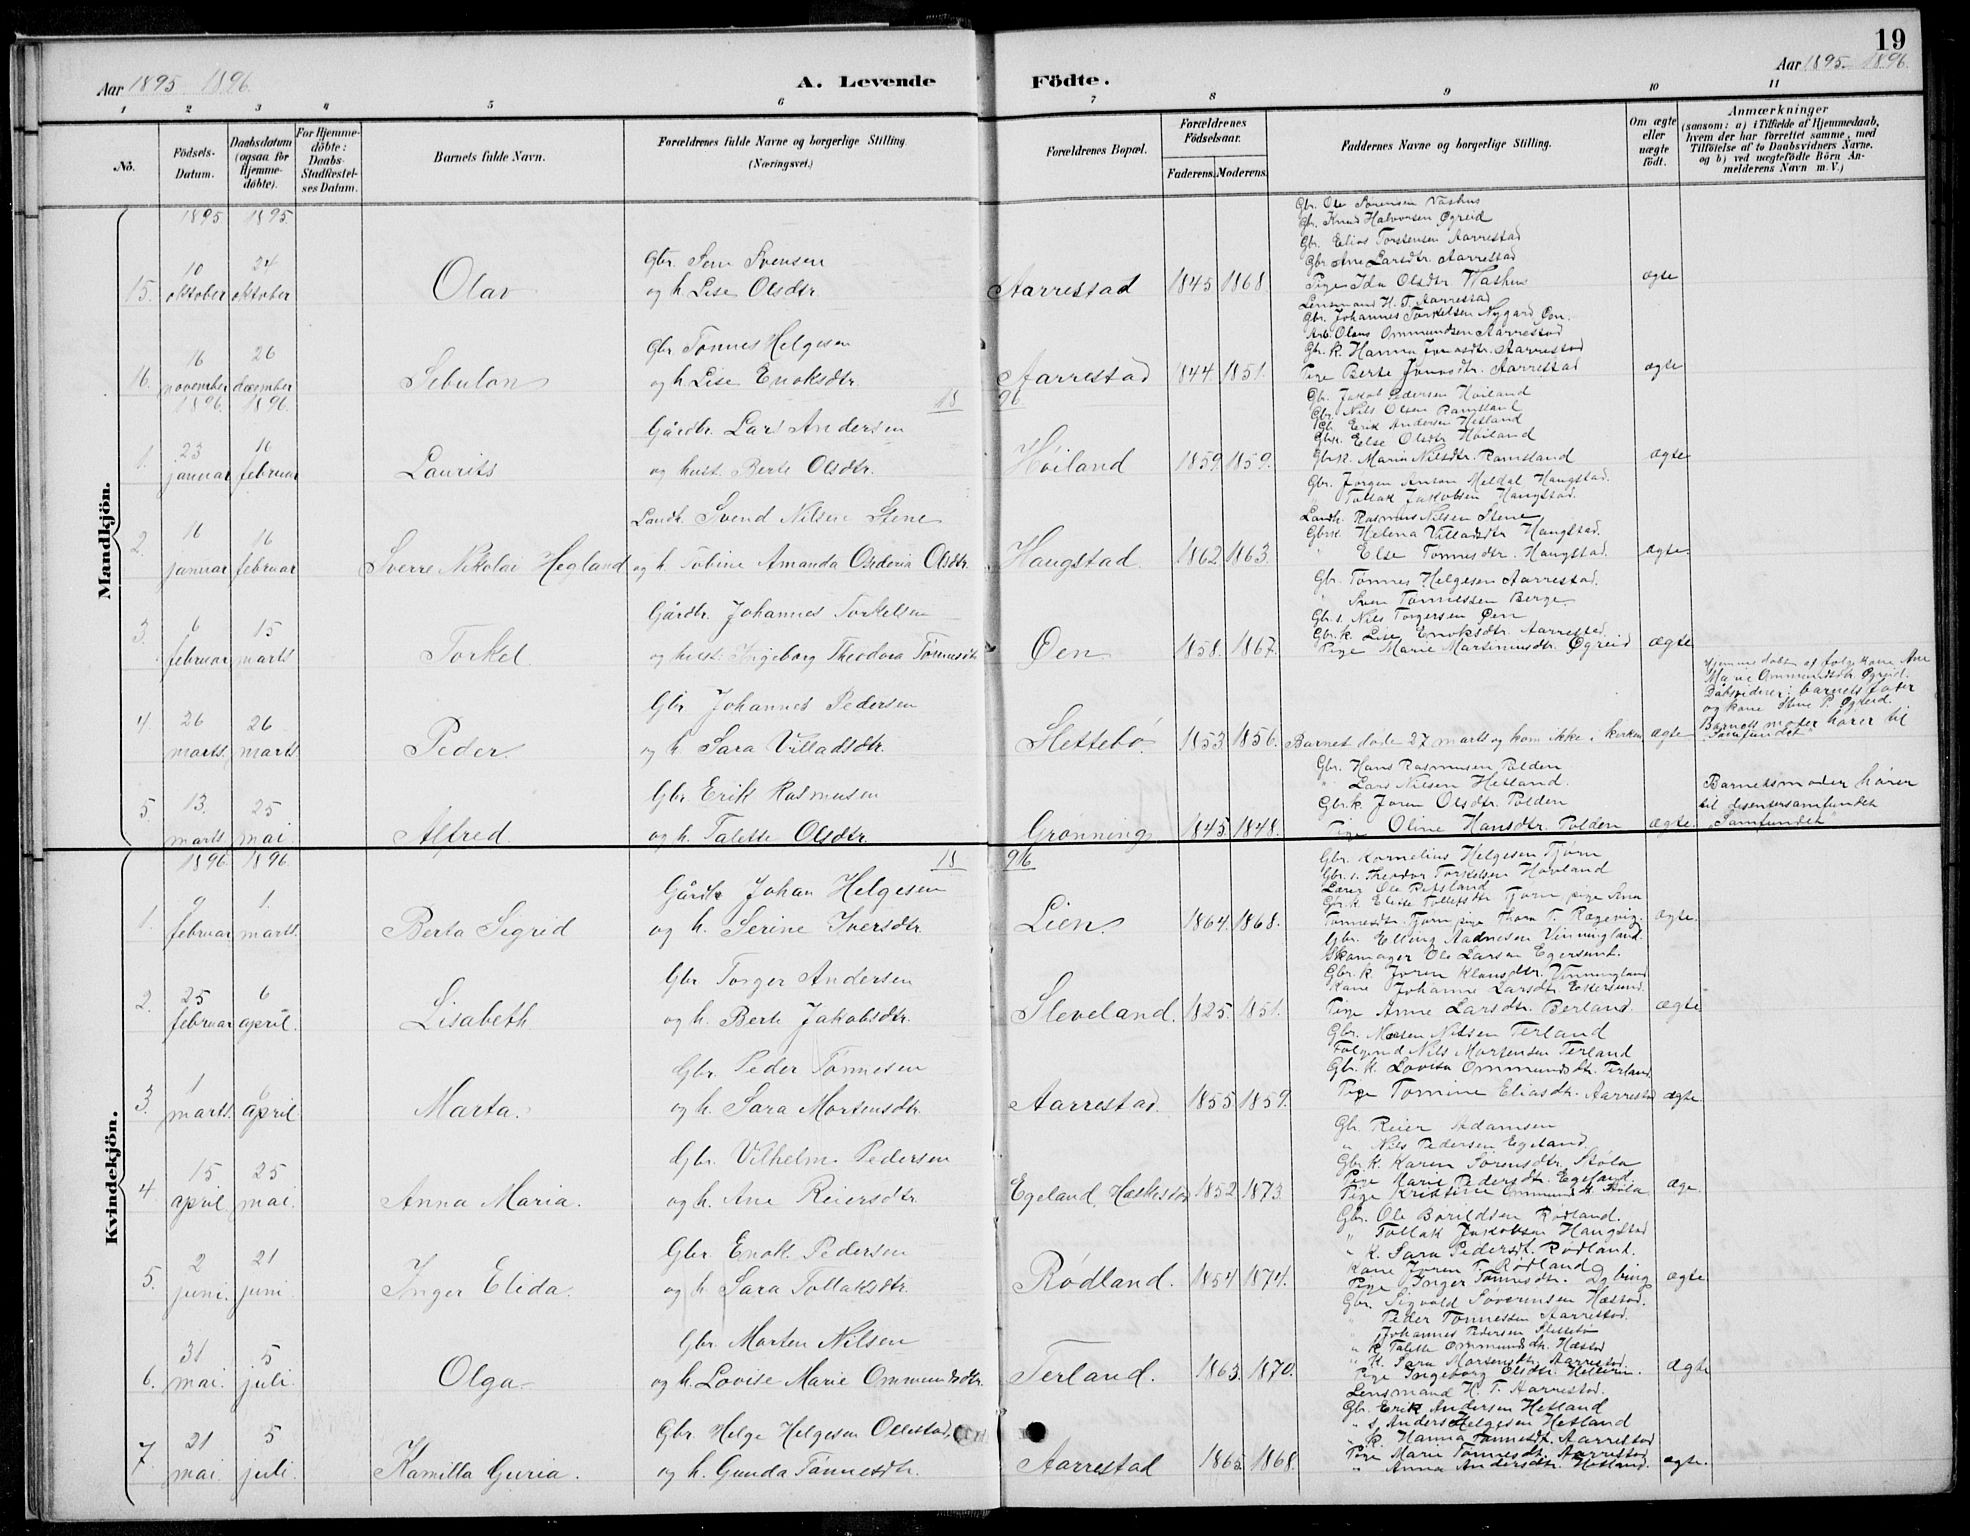 19
Aar 1895 - 1896.
A. Levende Födte.
Aar 1895 - 1896.
1 2 3 4 5 6 7 8 9 10 11
No.
Födsels-Datum.
Daabsdatum (ogsaa for Hjemme-döbte).
For Hjemme-döbte: Daabs-Stadfæstel-ses Datum.
Barnets fulde Navn.
Forældrenes fulde Navne og borgerlige Stilling. (Næringsvei.)
Forældrenes Bopæl.
Forældrenes Födselsaar.
Faderens. Moderens.
Faddernes Navne og borgerlige Stilling.
Om ægte eller uægte födt.
Anmærkninger
(saasom: a) i Tilfælde af Hjemmedaab,
hvem der har forrettet samme, med
Tilföielse af to Daabsvidners Navne.
og b) ved uægtefödte Börn An-
melderens Navn m. V.)
Mandkjön.
1895 1895
Gbr. Ole Sørensen Vashus
Gbr. Knud Halvorsen Øgreid
Gbr. Elias Torstensen Aarrestad
Gbr. Ane Larsdtr. Aarrestad
15. 10 oktober 24 oktober Olav Gbr. Sem Svensen og h. Lise Olsdtr. Aarrestad 1845 1868. Pige Ida Olsdtr. Washus ægte
Lensmand H. T. Aarrestad
Gbr. Johannes Torkelsen Nygard Øen.
Arb. Olaus Ommundsen Aarrestad
Gbr. k. Hanna Jonasdtr. Aarrestad
16. 16 november 26 december Sebulon Gbr. Tønnes Helgesen og h. Lise Enoksdtr. Aarrestad 1844. 1851. Pige Berte Jonasdtr. Aarrestad ægte
1896. 1896. 18 96
Gbr. Jakob Pedersen Høiland
Gbr. Nils Olsen Ramsland
Gb. Erik Andersen Hetland
Gbr.k. Else Olsdtr. Høiland
1. 23 januar 16 februar Laurits Gårdbr. Lars Andersen og hust. Berte Olsdtr. Høiland 1859. 1859. Gbr.k. Maria Nilsdtr. Ramsland ægte
Gbr. Jørgen Anton Meldal Haugstad.
" Tollak Jakobsen Haugstad.
Landh. Rasmus Nilsen Stene
Gbr.k. Helena Villadsdtr. Haugstad.
2. 16 januar 16 februar Sverre Nikolai Hegland Landh. Svend Nilsen Stene og h. Tobine Amanda Osderia Olsdtr. Haugstad. 1862 1863. " Else Tønnesdtr. Haugstad. ægte
Gbr. Tønnes Helgesen Aarrestad.
" Sven Tønnessen Berge.
Gbr. s. Nils Torgersen Øen
Gbr.k. Lise Enoksdtr. Aarrestad
3. 6 februar 15 marts Torkel. Gårdbr. Johannes Torkelsen og hust. Ingeborg Theodora Tønnesdtr. Øen 1858. 1867. Pige Marie Martinusdtr. Øgreid ægte
Hjemmedøbt af følgekone Ane
Marie Ommundsdtr. Øgreid.
Dåbsvidner: barnets fater
og kone Stine P. Øgreid.
Barnets moter hører til
"Samfundet"
4. 26 marts. 26 marts. Peder. Gbr. Johannes Pedersen og h. Sara Villadsdtr. Slettebø. 1853. 1856. Barnet døde 27 marts og kom ikke i kirken ægte
Gbr. Hans Rasmusen Polden
" Lars Nilsen Hetland.
Gbr.k. Joren Olsdtr. Polden
5 13. marts. 25 mai. Alfred. Gbr. Erik Rasmusen og h. Talette Olsdtr. Grønning. 1845. 1848. Pige Oline Hansdtr. Polden ægte.
Barnetsmoder hører
til disentersamfundet
"Samfundet"
Kvindekjön.
1896. 1896. 18 96
Gbr. Kornelius Helgesen Tjørn
Gbr. s. Theodor Torkelsen Hovland
Lærer Ole Refsland
Gbr.k. Eliste Tollefsdtr. Tjørn pige Ana
1. 9 februar 1. marts. Berta Sigrid Gårdbr. Johan Helgesen og h. Serine Iversdtr. Lien. 1864. 1868. Tønnesdtr. Tjørn pige Thora T. Rægevig. ægte.
Gbr. Elling Aadnesen Vinningland.
Skomager Ole Larsen Egersund.
Gbr. k. Joren Klausdtr. Vinningland
Kone Johanne Larsdtr. Ekersund.
2. 25 februar 6 april. Lisabeth Gbr. Torger Andersen og h. Berte Jakobsdtr. Sleveland. 1825. 1851. Pige Anne Larsdtr. Berland. ægte
Gbr. Morten Nilsen Terland
Følgemd Nils Mortensen Terland
Gbr. k. Lovisa Ommundsdtr. Terland.
3. 1 marts. 6 april. Marta. Gbr. Peder Tønnesen og h. Sara Mortensdtr. Aarrestad. 1855 1859. Pige Tomine Eliasdtr. Aarrestad ægte.
Gbr. Reier Adamsen
" Nils Pedersen Egeland
Gbr. k. Karen Sørensdtr. Støla
Pige Marie Pedersdtr. Egeland.
4. 15 april 25 mai. Anna Maria. Gbr. Vilhelm Pedersen og h. Ane Reiersdtr. Egeland, Hæskestad 1852 1873. Pige Kristine Ommundsdtr. Støla æge.
Gbr. Ole Børildsen Rødland.
" Tollak Jakobsen Haugstad
" k. Sara Pedersdt. Rødland.
Kone Joren T. Rødland
5. 2 juni. 21 juni. Inger Elida. Gbr. Enok Pedersen og h. Sara Tollaksdtr. Rødland. 1854 1874. Pige Inger Tønnesdtr. Dybing ægte.
Gbr. Sigvald Severinsen Hæstad.
" Peder Tønnessen Aarrestad.
" Johannes Pedersen Slettebø
" k. Talette Ommundsdtr. Hæstad
" k. Sara Mortensdtr. Aarrestad
6. 31 mai. 5 juli. Olga. Gbr. Morten Nilsen og h. Lovise Marie Ommundsdtr. Terland. 1863. 1870. Pige Ingeborg Elsdtr. Helleren. ægte
Lensmand H. T. Aarrestad.
Gbr. Erik Andersen Hetland
" s. Anders Helgesen Hetland
" k. Hanna Tønnesdtr. Aarrestad
Pige Marie Tønnesdtr. Aarrestad
7 21 mai. 5 juli. Kamilla Guria. Gbr. Helge Helgesen Ollestad og h. Gunda Tønnesdtr. Aarrestad 1865. 1868. " Anna Andersdtr. Hetland. ægte.